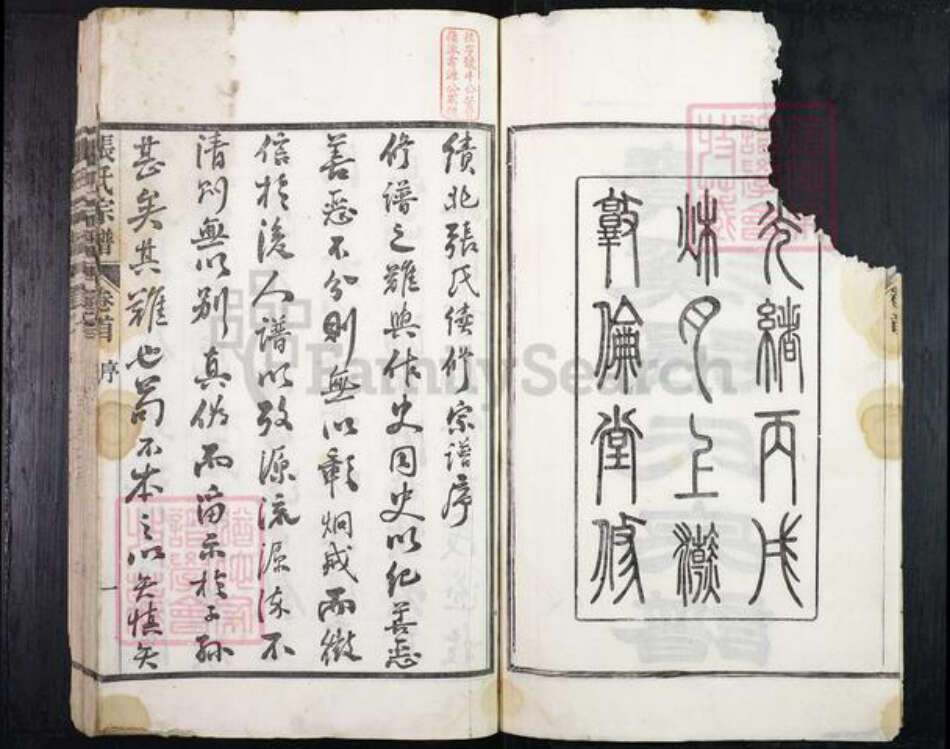 光緒丙戌
秌月上澣
敦倫堂修
績北張氏續修宗譜序
修譜之難與作史同史以紀善惡
善惡不分則無以彰炯戒而徵
信於後人譜以攷源流源流不
清則無以別真偽而留示於子孫
甚矣其難也苟不本之以矢慎矢
張氏宗譜
卷首
序
一
FamilySearch